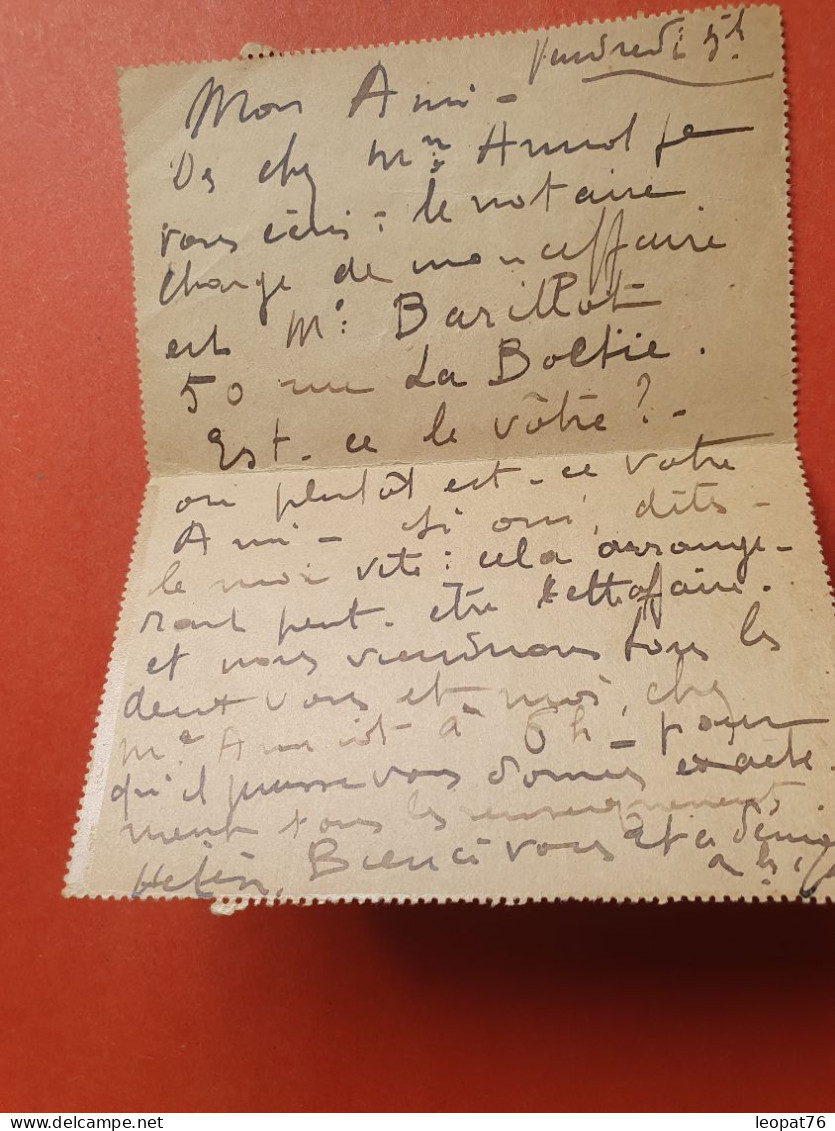 Vendredi 5h
Mon Ami -
De chez Mr Amiot je
vous écris : le notaire
chargé de mon affaire
est Me Barillot
50 rue La Boëtie.
Est-ce le vôtre ? -
ou plutôt est-ce votre
Ami - si oui, dites-
le moi vite : cela arrange-
rait peut-être cette affaire.
et nous viendrions tous les
deux vous et moi, chez
Me Amiot à 6h - pour
qu'il puisse vous donner exacte-
ment tous les renseignements
Bien à vous et a
leopat76